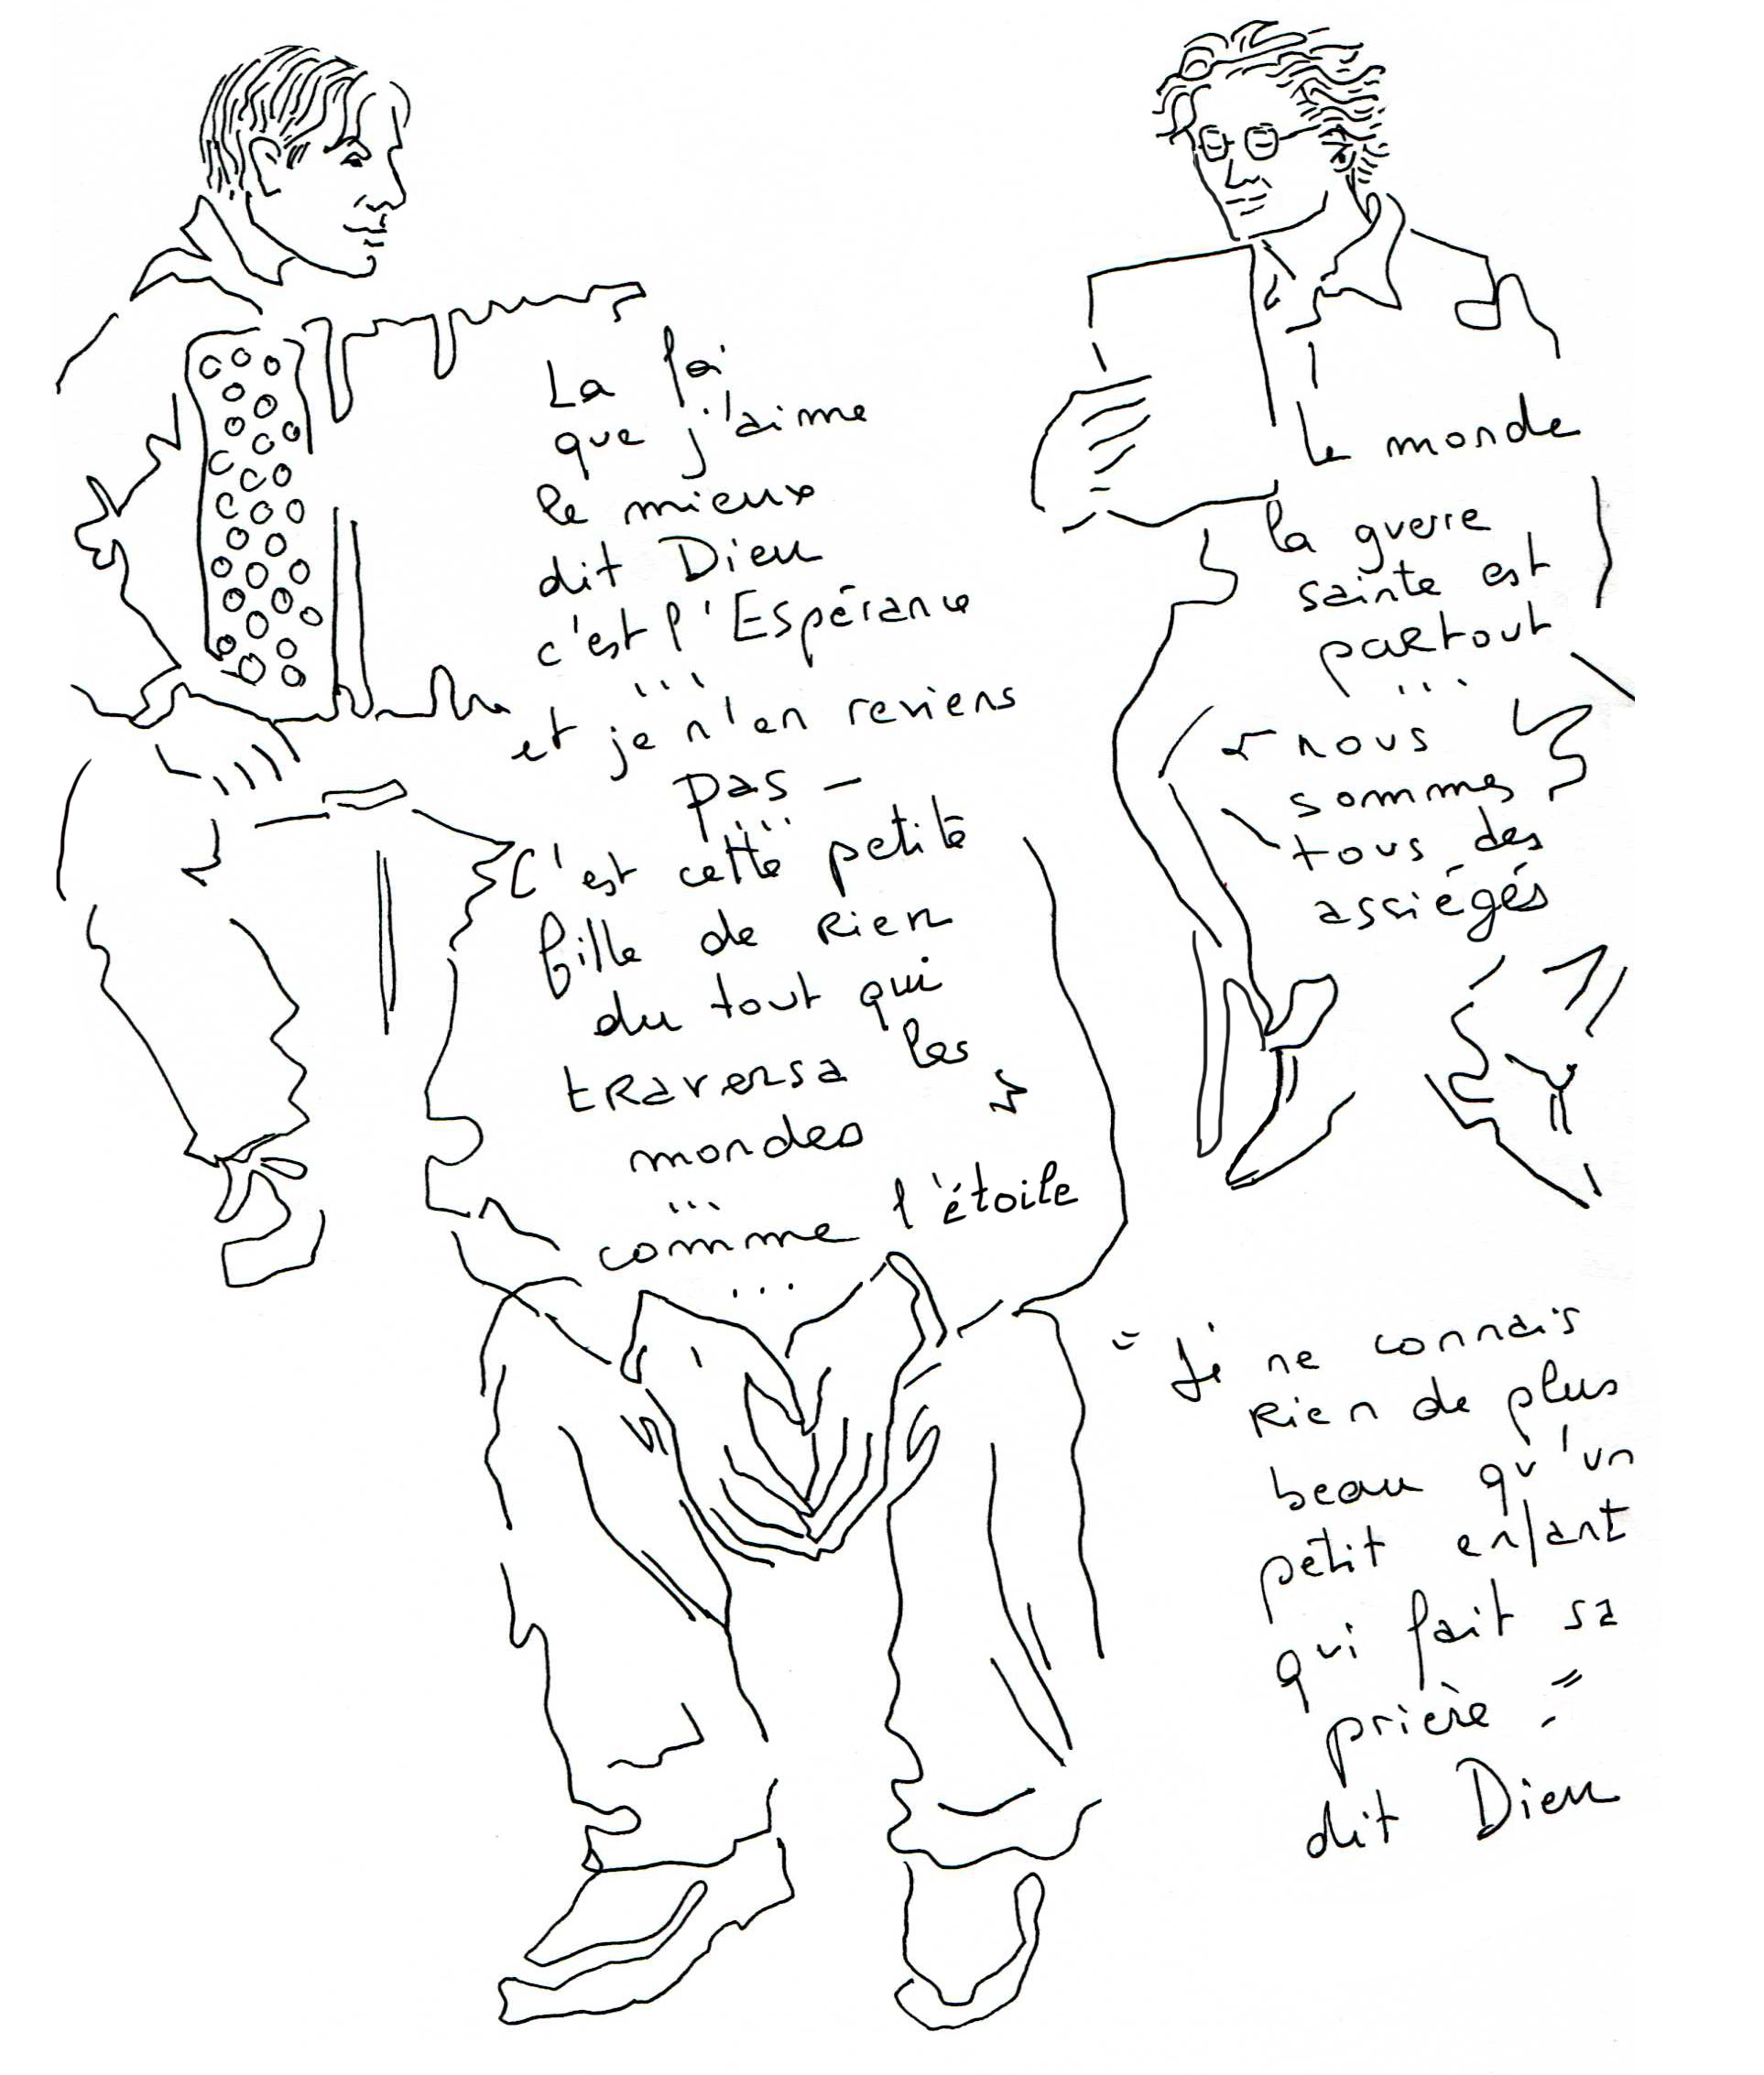 La foi
que j'aime
le mieux
dit Dieu
c'est l'Espérance
...
et je n'en reviens
pas -
...
C'est cette petite
fille de Rien
du tout qui
traversa les
mondes
...
comme l'étoile
...
le monde
la guerre
sainte est
partout
...
nous
sommes
tous des
assiégés
"Je ne connais
Rien de plus
beau qu'un
petit enfant
qui fait sa
prière"
dit Dieu